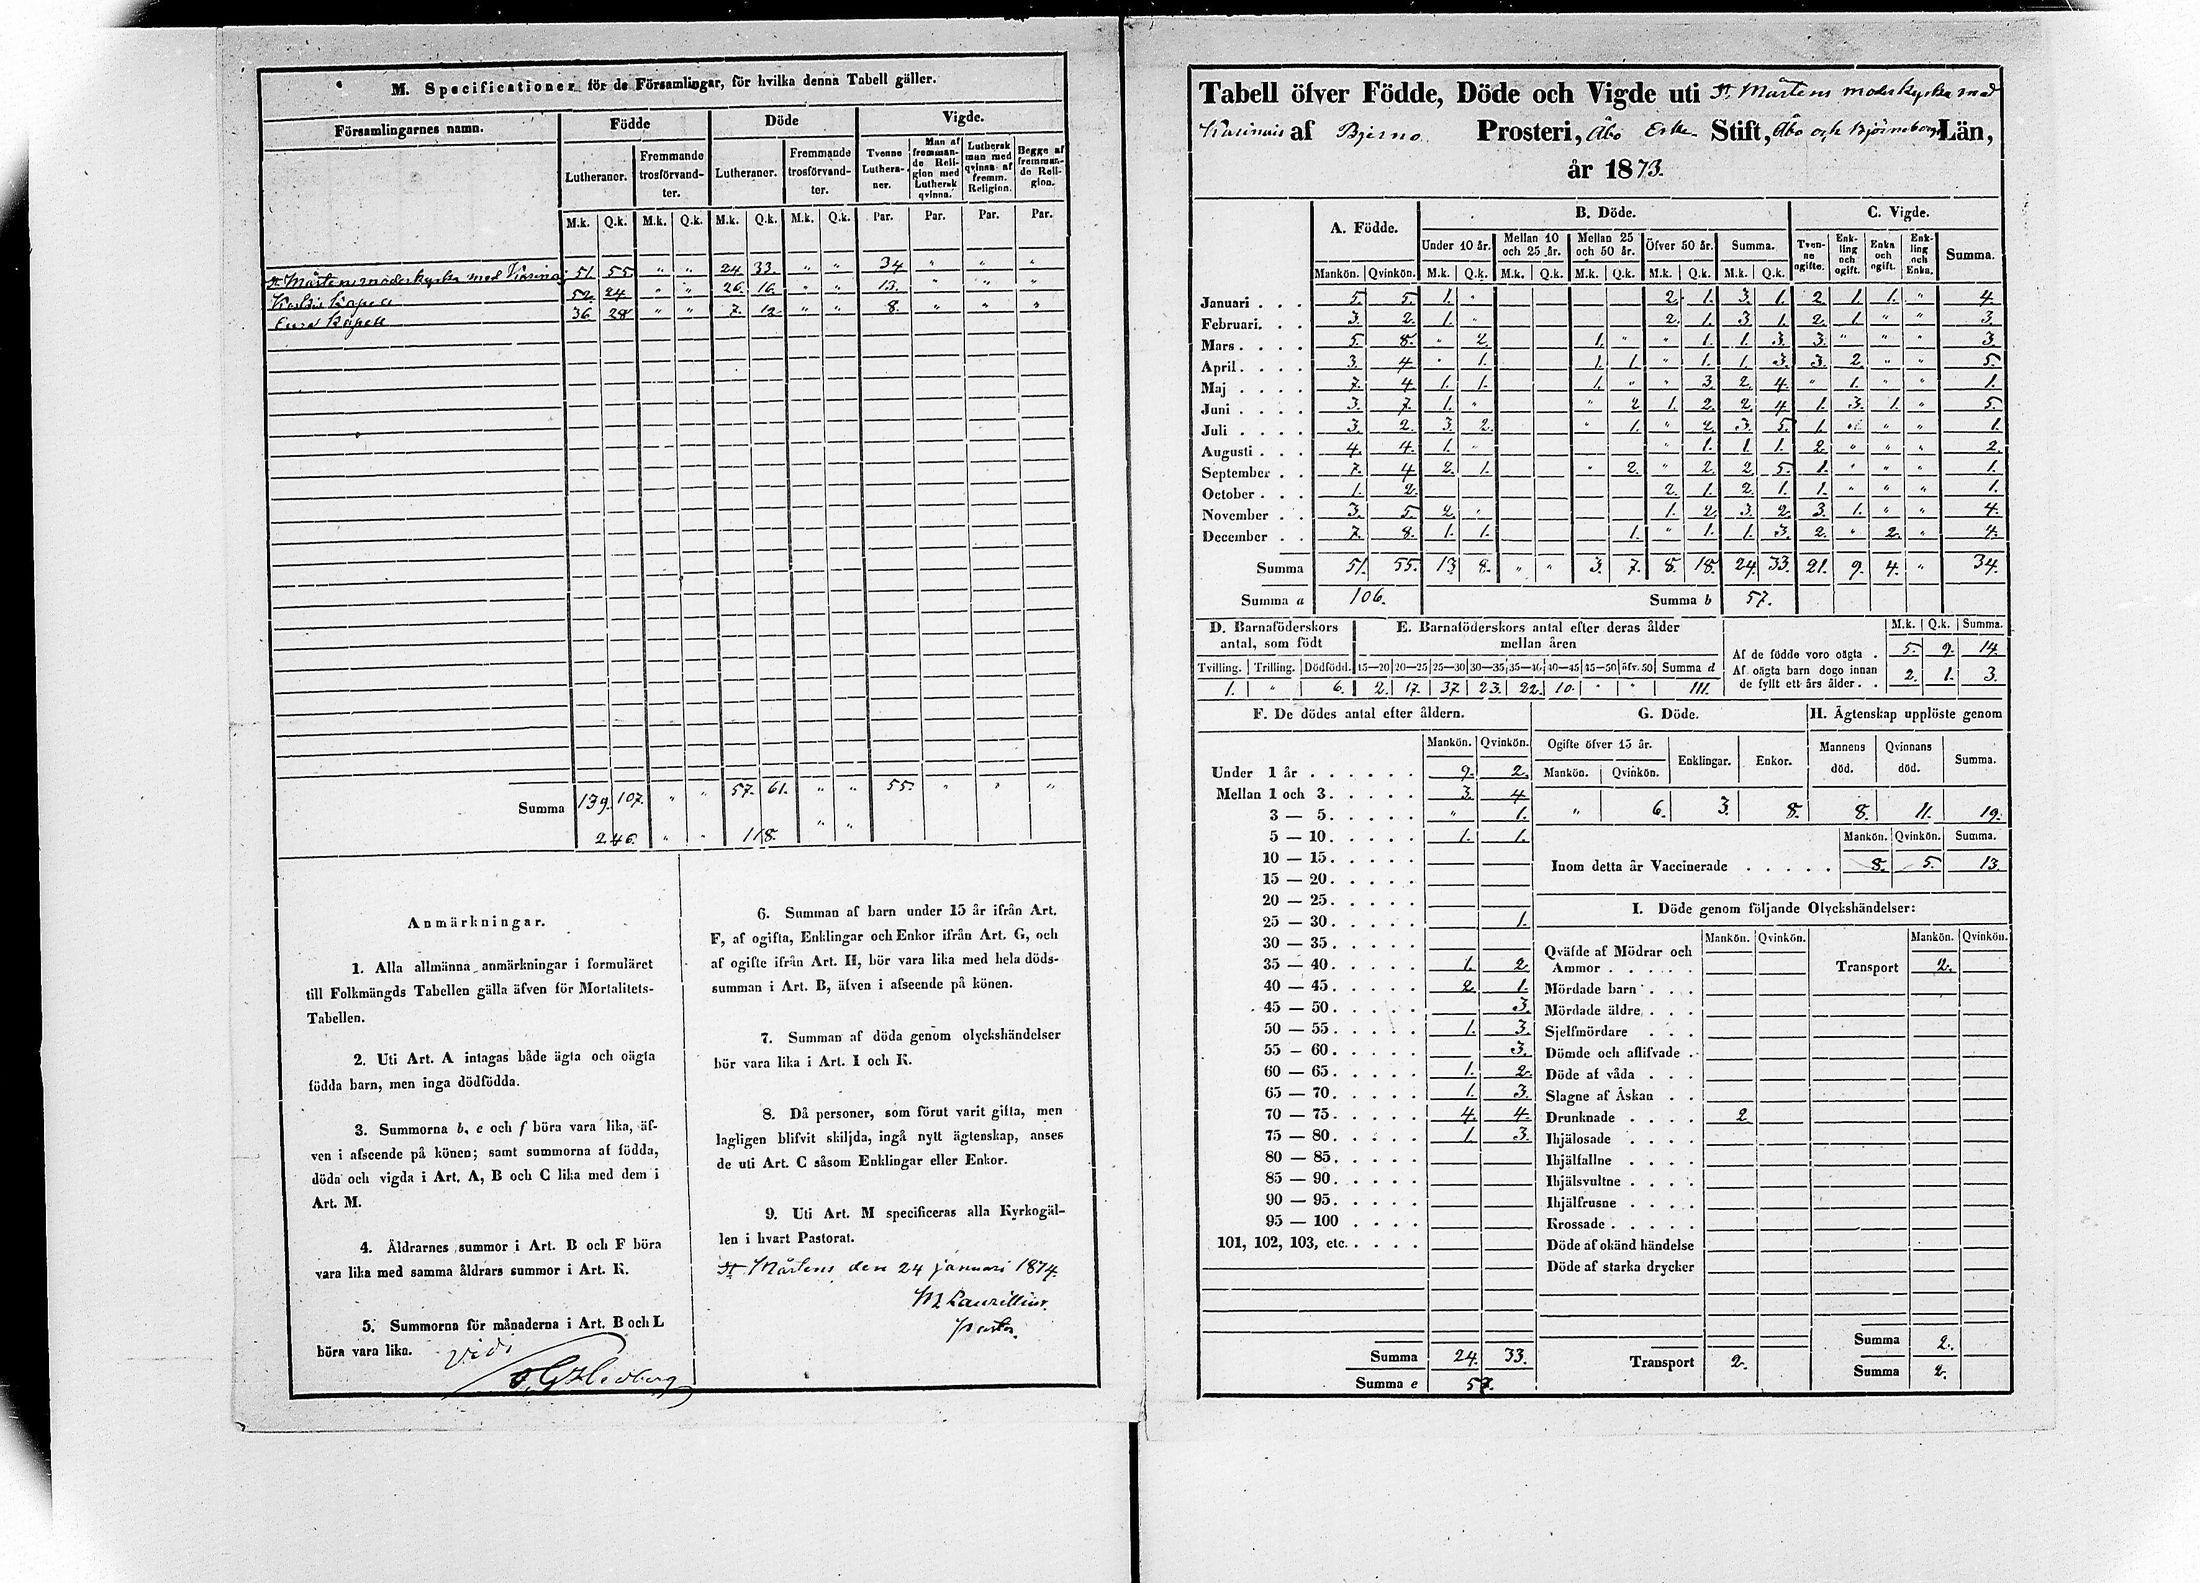 M. Specificationer för de Församlingar, för hvilka denna Tabell gäller.
Församlingarnes namn. Födde Döde Vigde.
Lutheraner. Fremmande trosförvandter. Lutheraner. Fremmande trosförvandter. Tvenne Lutheraner. Man af fremmande Religion med Luthersk qvinna. Luthersk man med qvinna af fremm. Religion. Begge af fremmande Religion.
M.k. Q.k. M.k. Q.k. M.k. Q.k. M.k. Q.k. Par. Par. Par. Par.
St Mårtens moderkyrka med 51. 55. " " 24 33. " " 34 " " "
Kapell 52. 24 " " 26. 16. " " 13. " " "
Eura Kapell 36 28 " " 7. 12. " " 8. " " "
Summa 139. 107. " " 57. 61. " " 55. " " "
246. " " 118. " "
Anmärkningar.
1. Alla allmänna anmärkningar i formuläret
till Folkmängds Tabellen gälla äfven för Mortalitets-
Tabellen.
2. Uti Art. A intagas både ägta och oägta
födda barn, men inga dödfödda.
3. Summorna b, e och f böra vara lika, äf-
ven i afseende på könen; samt summorna af födda,
döda och vigda i Art. A, B och C lika med dem i
Art. M.
4. Åldrarnes summor i Art. B och F böra
vara lika med samma åldrars summor i Art. K.
5. Summorna för månaderna i Art. B och L
böra vara lika.
Vidi
Hedberg
6. Summan af barn under 15 år ifrån Art.
F, af ogifta, Enklingar och Enkor ifrån Art. G, och
af ogifte ifrån Art. H, bör vara lika med hela döds-
summan i Art. B, äfven i afseende på könen.
7. Summan af döda genom olyckshändelser
bör vara lika i Art. I och K.
8. Då personer, som förut varit gifta, men
lagligen blifvit skiljda, ingå nytt ägtenskap, anses
de uti Art. C såsom Enklingar eller Enkor.
9. Uti Art. M specificeras alla Kyrkogäl-
len i hvart Pastorat.
St Mårtens den 24 januari 1874.
Laurellius.
Pastor.
Tabell öfver Födde, Döde och Vigde uti St. Mårtens moderkyrka med
af Bjerno Prosteri, Åbo Erke- Stift, Åbo och Björneborgs Län,
år 1873.
A. Födde. B. Döde. C. Vigde.
Under 10 år. Mellan 10 och 25 år. Mellan 25 och 50 år. Öfver 50 år. Summa. Tvenne ogifte. Enkling och ogift. Enka och ogift. Enkling och Enka. Summa.
Mankön. Qvinkön. M.k. Q.k. M.k. Q.k. M.k. Q.k. M.k. Q.k. M.k. Q.k.
Januari . . . 5. 5. 1. " 2. 1. 3. 1. 2. 1. 1. " 4.
Februari. . . 3. 2. 1. " 2. 1. 3. 1. 2. 1. " " 3.
Mars . . . . 5. 8. " 2. 1. " " 1. 1. 3. 3. " " " 3.
April . . . . 3. 4. " 1. 1. 1. " 1. 1. 3. 3. 2. " " 5.
Maj . . . . 7. 4. 1. 1. 1. " " 3. 2. 4. " 1. " " 1.
Juni . . . . 3. 7. 1. " " 2. 1. 2. 2. 4. 1. 3. 1. " 5.
Juli . . . . 3. 2. 3. 2. " 1. " 2. 3. 5. 1. " " " 1.
Augusti . . . 4. 4. 1. " " 1. 1. 1. 2. " " " 2.
September . . 7. 4. 2. 1. " 2. " 2. 2. 5. 1. " " " 1.
October . . . 1. 2. 2. 1. 2. 1. 1. " " " 1.
November . . 3. 5. 2. " 1. 2. 3. 2. 3. 1. " " 4.
December . . 7. 8. 1. 1. 1. " 1. 1. 3. 2. " 2. " 4.
Summa 51. 55. 13. 8. " " 3. 7. 8. 18. 24. 33. 21. 9. 4. " 34.
Summa a 106. Summa b 57.
D. Barnaföderskors antal, som födt
Tvilling. Trilling. Dödfödd.
1. " 6.
E. Barnaföderskors antal efter deras ålder mellan åren
15—20 20—25 25—30 30—35 35—40 40—45 45—50 öfv. 50 Summa d
2. 17. 37. 23. 22. 10. " " 111.
M.k. Q.k. Summa.
Af de födde voro oägta . 5. 9. 14.
Af oägta barn dogo innan
de fyllt ett års ålder . . 2. 1. 3.
F. De dödes antal efter åldern.
Mankön. Qvinkön.
Under 1 år . . . . . . 9. 2.
Mellan 1 och 3 . . . . . 3. 4.
3 — 5 . . . . . " 1.
5 — 10 . . . . . 1. 1.
10 — 15 . . . . .
15 — 20 . . . . .
20 — 25 . . . . .
25 — 30 . . . . . 1.
30 — 35 . . . . .
35 — 40 . . . . . 1. 2.
40 — 45 . . . . . 2. 1.
45 — 50 . . . . . 3.
50 — 55 . . . . . 1. 3.
55 — 60 . . . . . 3.
60 — 65 . . . . . 1. 2.
65 — 70 . . . . . 1. 3.
70 — 75 . . . . . 4. 4.
75 — 80 . . . . . 1. 3.
80 — 85 . . . . .
85 — 90 . . . . .
90 — 95 . . . . .
95 — 100 . . . .
101, 102, 103, etc. . . . .
Summa 24. 33.
Summa e 57.
G. Döde.
Ogifte öfver 15 år. Enklingar. Enkor.
Mankön. Qvinkön.
" 6. 3. 8.
H. Ägtenskap upplöste genom
Mannens död. Qvinnans död. Summa.
8. 11. 19.
Mankön. Qvinkön. Summa.
Inom detta år Vaccinerade . . . . . 8. 5. 13.
I. Döde genom följande Olyckshändelser:
Mankön. Qvinkön. Mankön. Qvinkön.
Qväfde af Mödrar och
Ammor . . . . . Transport 2.
Mördade barn . . .
Mördade äldre . . .
Sjelfmördare . . .
Dömde och aflifvade .
Döde af våda . . .
Slagne af Åskan . .
Drunknade . . . . 2
Ihjälosade . . . .
Ihjälfallne . . . .
Ihjälsvultne . . . .
Ihjälfrusne . . . .
Krossade . . . . .
Döde af okänd händelse
Döde af starka drycker
Summa 2.
Transport 2. Summa 2.